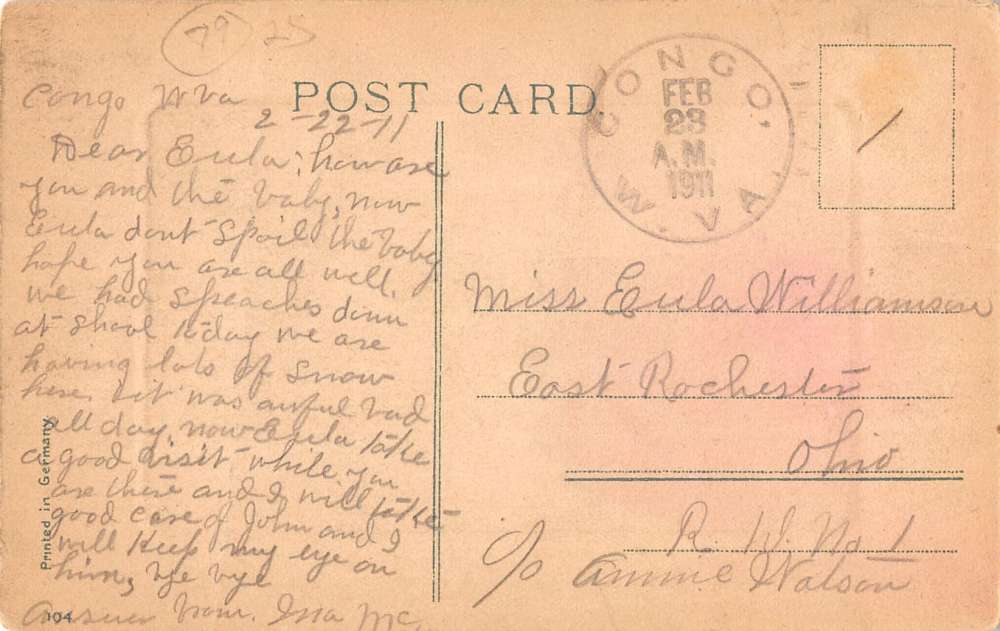 79 25
POST CARD.
CONGO, W. VA.
FEB
23
A.M.
1911
Congo W Va
2-22-11
Dear Eula; how are
you and the baby, now
Eula dont spoil the baby
hope you are all well.
we had speaches down
at shool today we are
having lots of snow
here. it was awful bad
all day, now Eula take
a good visit while you
are there and I will take
good care of John and I
will keep my eye on
him, bye bye
Answer from. Ina Mc.
Miss Eula Williamson
East Rochester
Ohio
R. D. No. 1
c/o Annie Watson
Printed in Germany
104